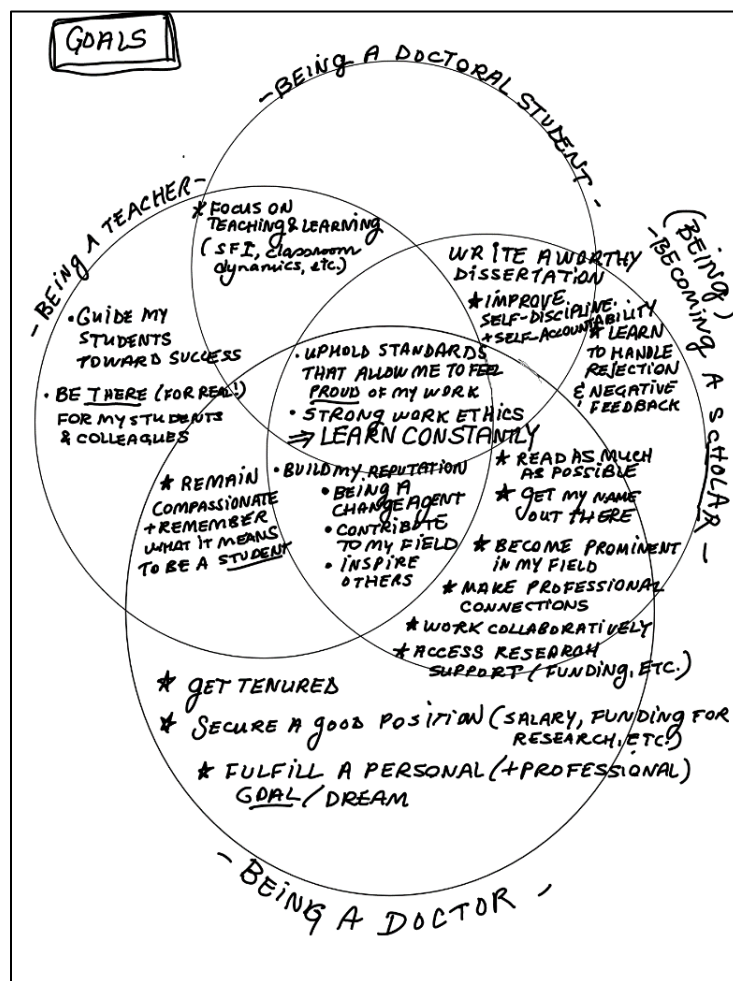 GOALS
- BEING A DOCTORAL STUDENT -
- BEING A TEACHER -
(BEING)
- BECOMING A SCHOLAR -
* FOCUS ON
TEACHING & LEARNING
(SFI, classroom
dynamics, etc.)
WRITE A WORTHY
DISSERTATION
* IMPROVE
SELF-DISCIPLINE
+ SELF-ACCOUNTABILITY
* LEARN
TO HANDLE
REJECTION
& NEGATIVE
FEEDBACK
• GUIDE MY
STUDENTS
TOWARD SUCCESS
• BE THERE (FOR REAL!)
FOR MY STUDENTS
& COLLEAGUES
• UPHOLD STANDARDS
THAT ALLOW ME TO FEEL
PROUD OF MY WORK
• STRONG WORK ETHICS
⇒ LEARN CONSTANTLY
* REMAIN
COMPASSIONATE
+ REMEMBER
WHAT IT MEANS
TO BE A STUDENT
• BUILD MY REPUTATION
• BEING A
CHANGE AGENT
• CONTRIBUTE
TO MY FIELD
• INSPIRE
OTHERS
* READ AS MUCH
AS POSSIBLE
* GET MY NAME
OUT THERE
* BECOME PROMINENT
IN MY FIELD
* MAKE PROFESSIONAL
CONNECTIONS
* WORK COLLABORATIVELY
* ACCESS RESEARCH
SUPPORT (FUNDING, ETC.)
* GET TENURED
* SECURE A GOOD POSITION (SALARY, FUNDING FOR
RESEARCH, ETC.)
* FULFILL A PERSONAL (+ PROFESSIONAL)
GOAL / DREAM
- BEING A DOCTOR -